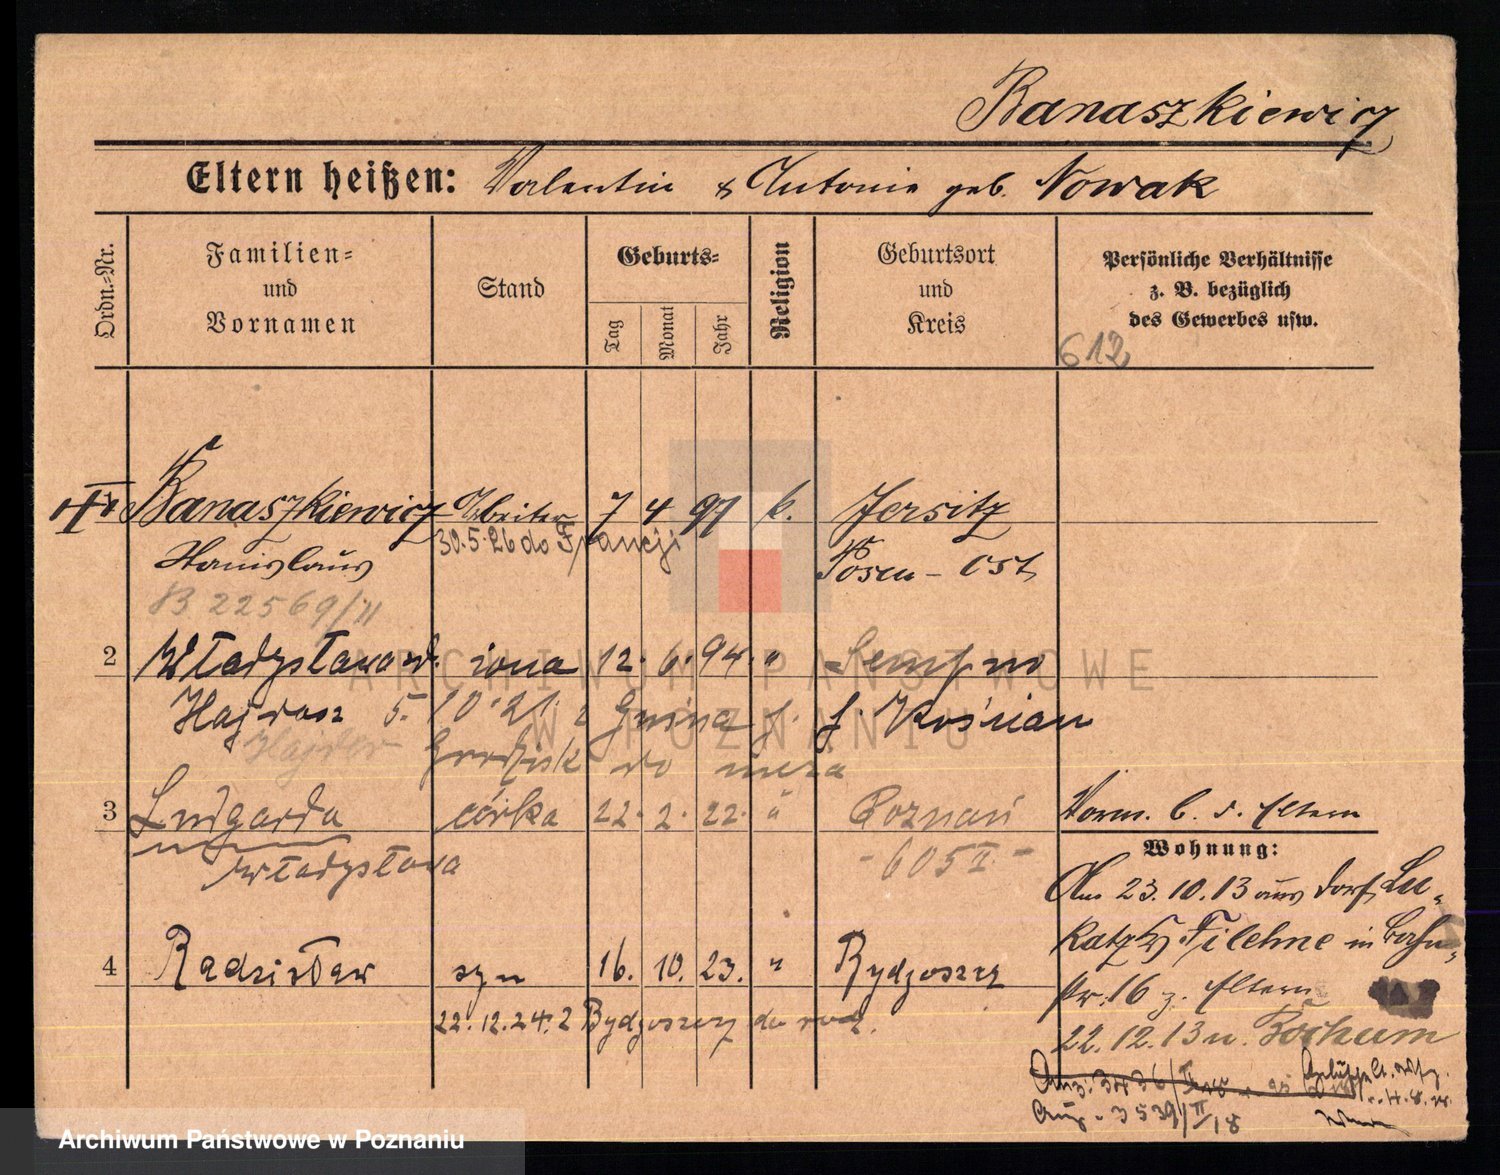 Banaszkiewicz
Eltern heißen: Valentin & Antonie geb. Nowak
Ordn.-Nr.
Familien=
und
Vornamen
Stand
Geburts=
Tag
Monat
Jahr
Religion
Geburtsort
und
Kreis
Persönliche Verhältnisse
z. B. bezüglich
des Gewerbes usw.
612
Banaszkiewicz Arbeiter 7 4 97 k. Jersitz
30.5.26 do Francji
Stanislaus Posen - Ost
B 22569/II
2 Władysława żona 12. 6. 94. " 
5. 10. 21. z Gniezna j. Kościan
Hajder
Grodzisk do męża
3 Ludgarda córka 22. 2. 22. " Poznań
Władysława - 605 II -
Vorm. b. d. Eltern
Wohnung:
Am 23.10.13 aus Dorf
Filehne in
16 z. Eltern
22.12.13 n. Bochum
4 Radzisław syn 16. 10. 23. " Bydgoszcz
22.12.24. z Bydgoszczy do rodz.
3539/II/18
ARCHIWUM PAŃSTWOWE
W POZNANIU
Archiwum Państwowe w Poznaniu